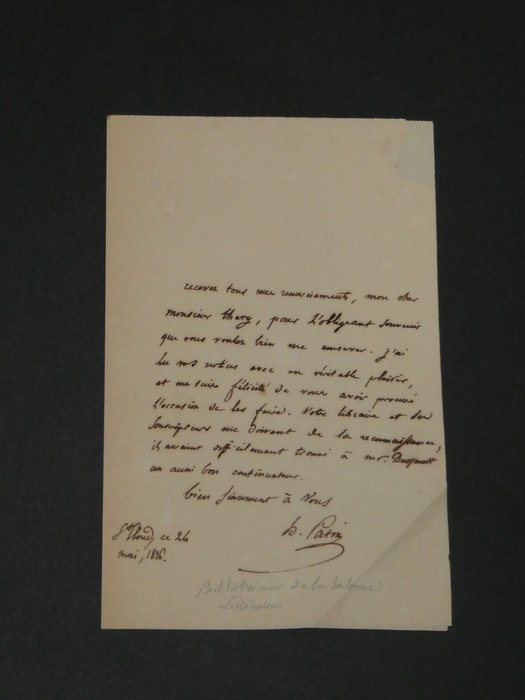 recevez tous mes remerciements, mon cher
monsieur thery, pour l'obligeant souvenir
que vous voulez bien me conserver. J'ai
lu vos notices avec un véritable plaisir,
et me suis félicité de vous avoir procuré
l'occasion de les faire. Votre libraire et ses
souscripteurs me doivent de la reconnaissance,
ils auraient difficilement trouvé à mr. Dussault
un aussi bon continuateur.
bien sincerement à vous
h. Patin
St Cloud, ce 26
mai, 1826.
Bibliothécaire de la Sorbonne